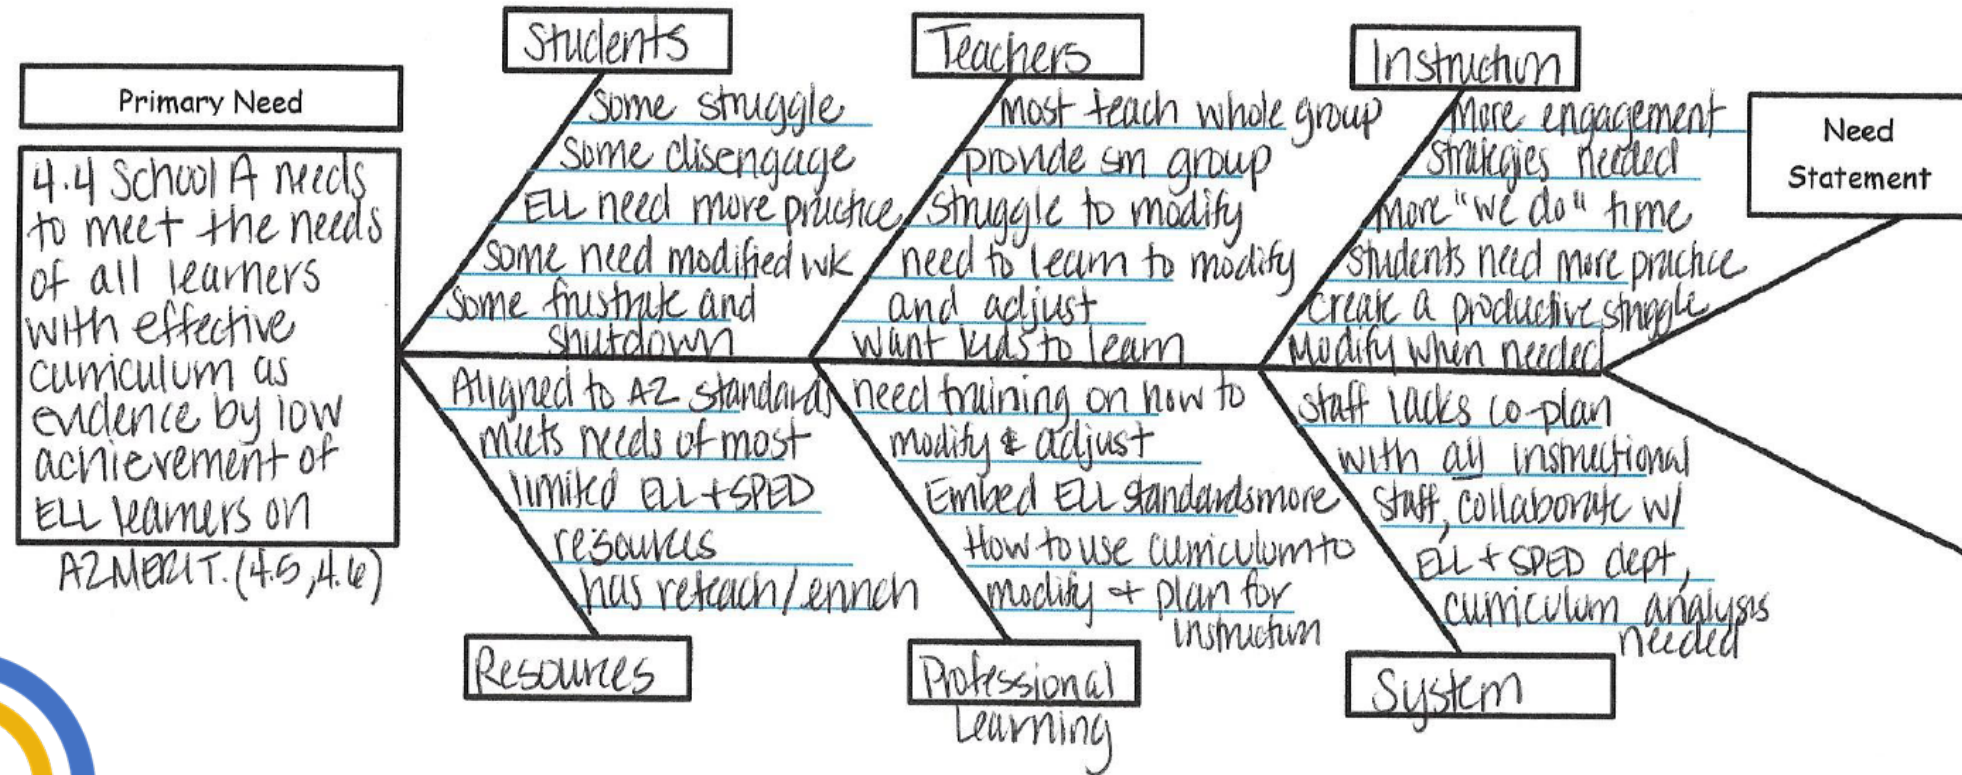 Primary Need
4.4 School A needs
to meet the needs
of all learners
with effective
curriculum as
evidence by low
achievement of
ELL learners on
AZMERIT. (4.5, 4.6)
Students
Some struggle
Some disengage
ELL need more practice
Some need modified wk
Some frustrate and
shutdown
Teachers
Most teach whole group
provide sm group
Struggle to modify
need to learn to modify
and adjust
want kids to learn
Instruction
More engagement
strategies needed
More "we do" time
Students need more practice
Create a productive struggle
Modify when needed
Need
Statement
Aligned to AZ standards
meets needs of most
limited ELL + SPED
resources
has reteach/enrich
Resources
need training on how to
modify & adjust
Embed ELL standards more
How to use curriculum to
modify + plan for
instruction
Professional
Learning
Staff lacks co-plan
with all instructional
staff, collaborate w/
ELL + SPED dept,
curriculum analysis
needed
System